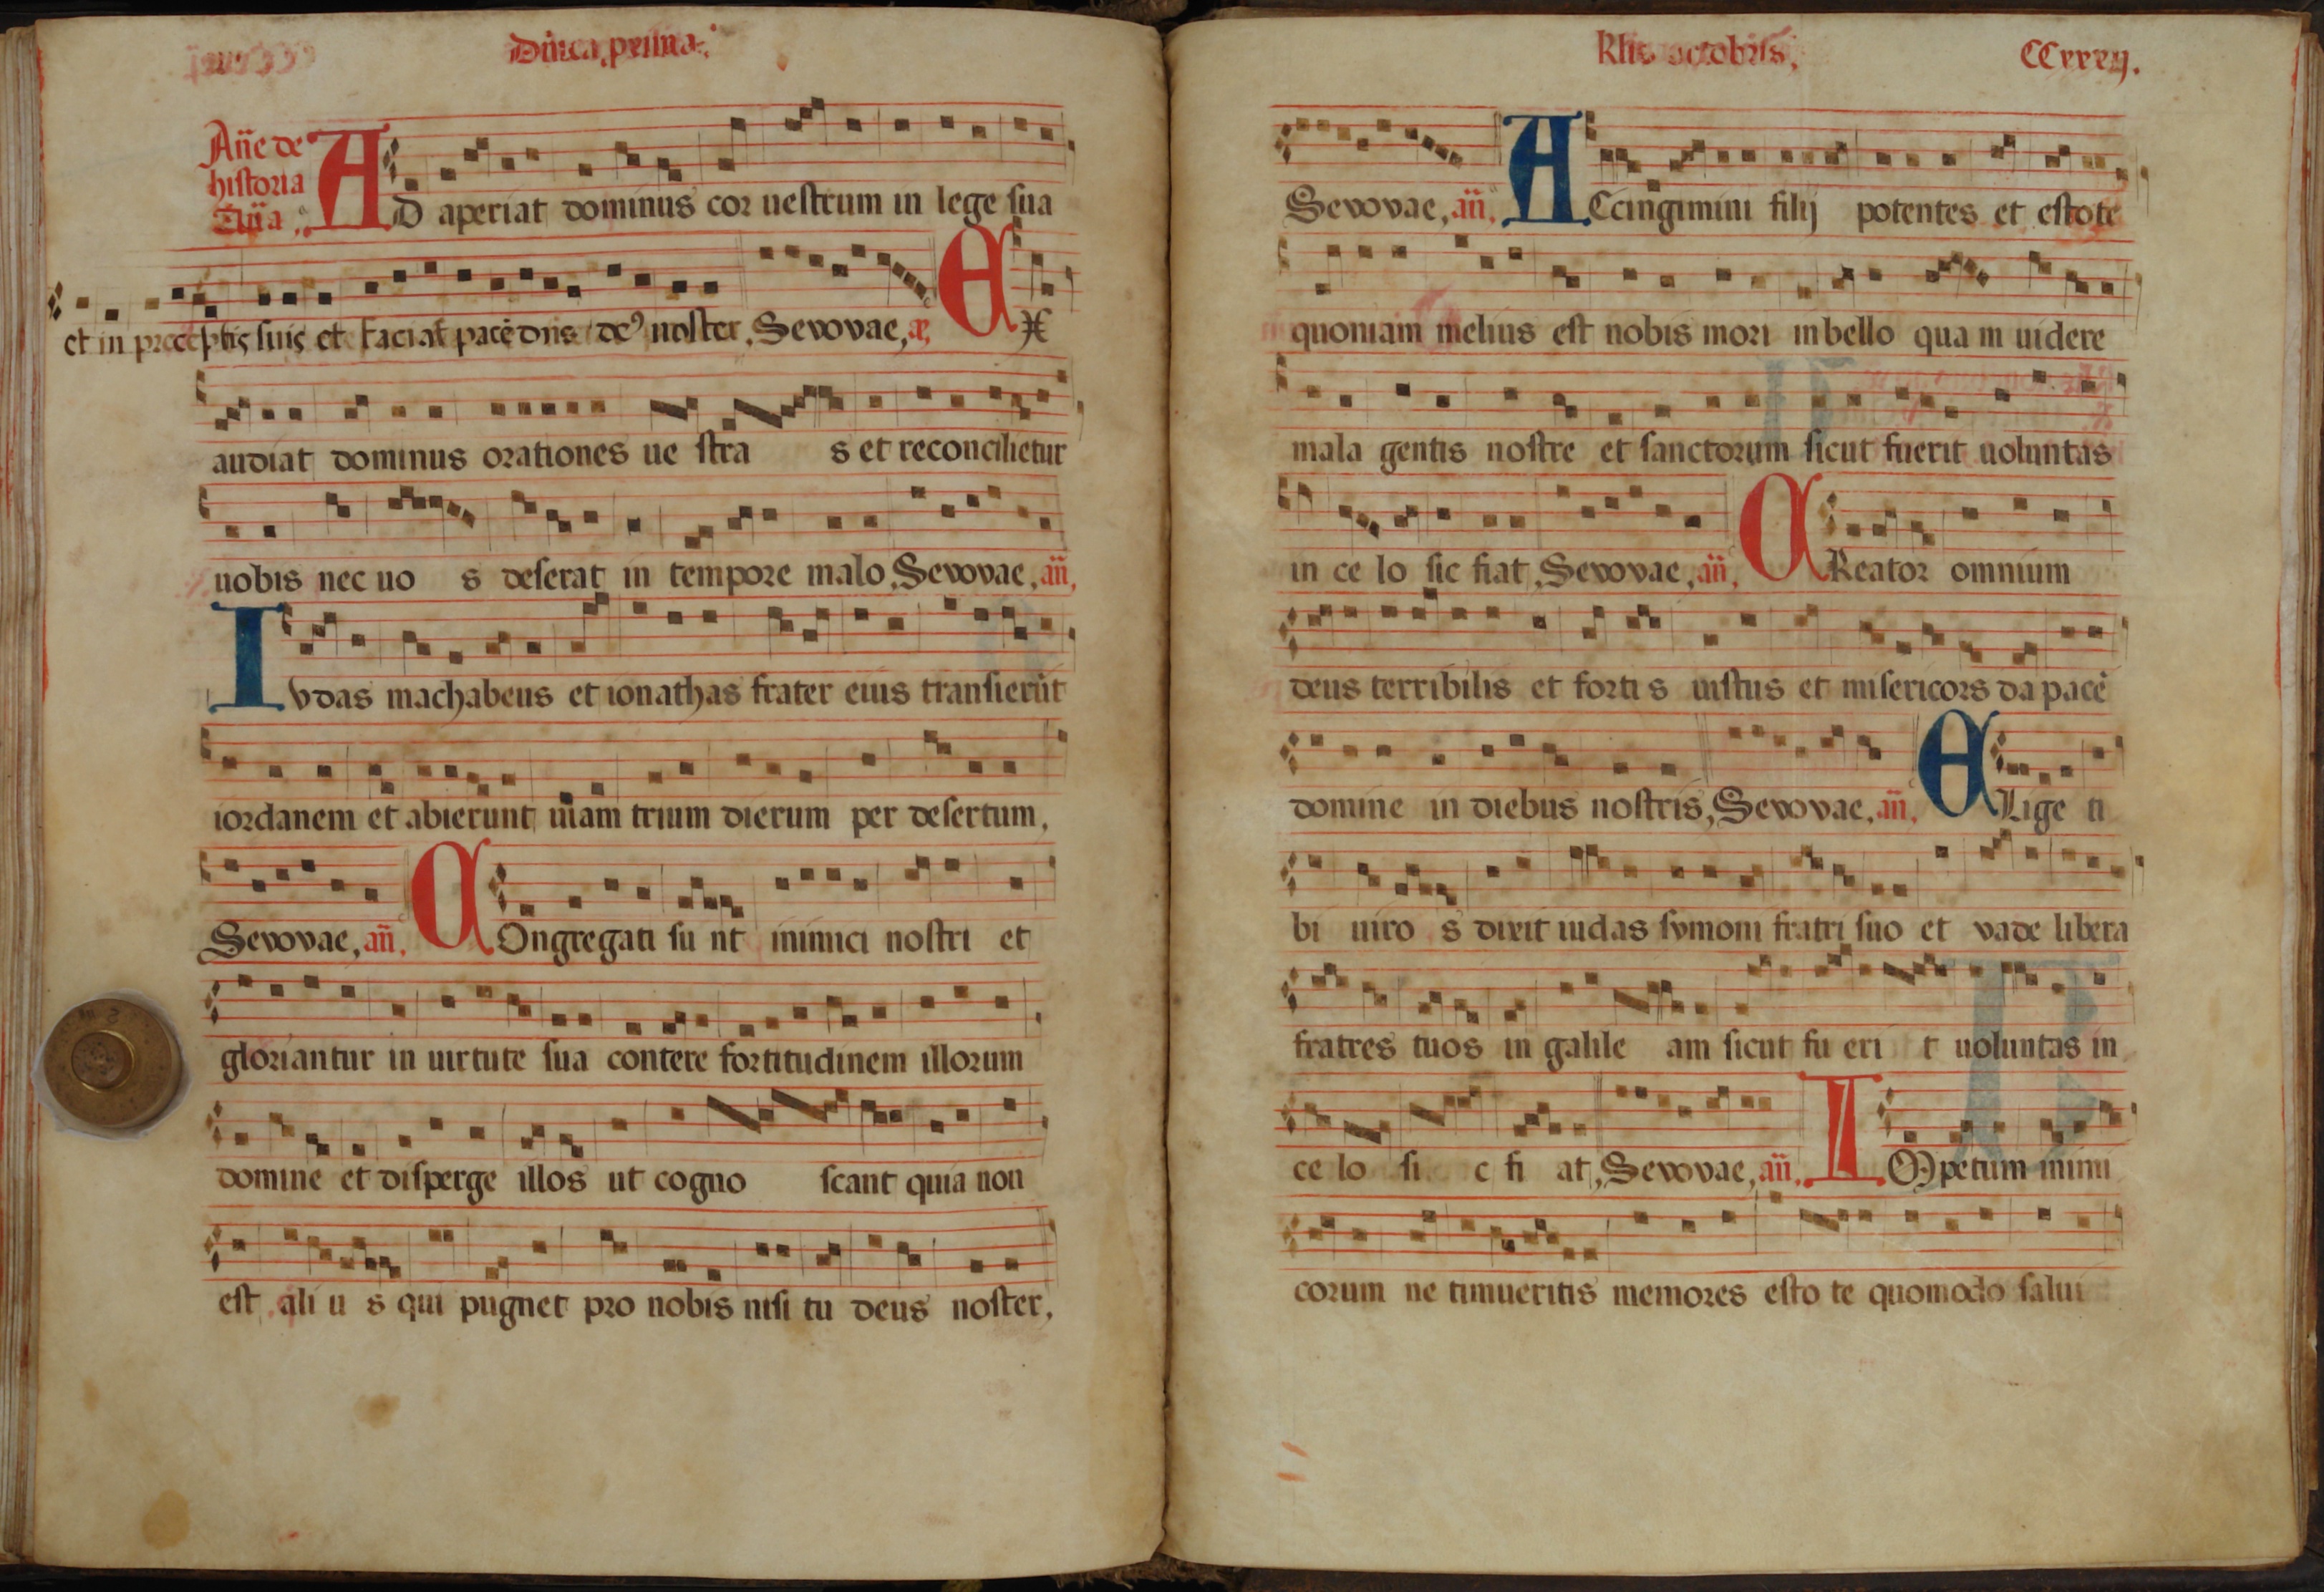 Dnica, prima.
Añe de
historia
AD aperiat dominus cor uestrum in lege sua
et in preceptis suis et faciat pacē dns deꝰ noster, Sevovae, æ, EX
audiat dominus orationes ue stra s et reconcilietur
uobis nec uo s deserat in tempore malo, Sevovae, añ,
Ivdas machabeus et ionathas frater eius transierūt
iordanem et abierunt uiam trium dierum per desertum,
Sevovae, añ, COngregati su nt inimici nostri et
gloriantur in uirtute sua contere fortitudinem illorum
domine et disperge illos ut cogno scant quia non
est ali u s qui pugnet pro nobis nisi tu deus noster,
Klis octobris, CCxxxij.
Sevovae, añ, ACcingimini filij potentes et estote
quoniam melius est nobis mori in bello qua m uidere
mala gentis nostre et sanctorum sicut fuerit uoluntas
in ce lo sic fiat, Sevovae, añ, CReator omnium
deus terribilis et forti s iustus et misericors da pacē
domine in diebus nostris, Sevovae, añ, ELige ti
bi uiro s dixit iudas symoni fratri suo et vade libera
fratres tuos in galile am sicut fu eri t uoluntas in
ce lo si c fi at, Sevovae, añ, IMpetum inimi
corum ne timueritis memores esto te quomodo salui